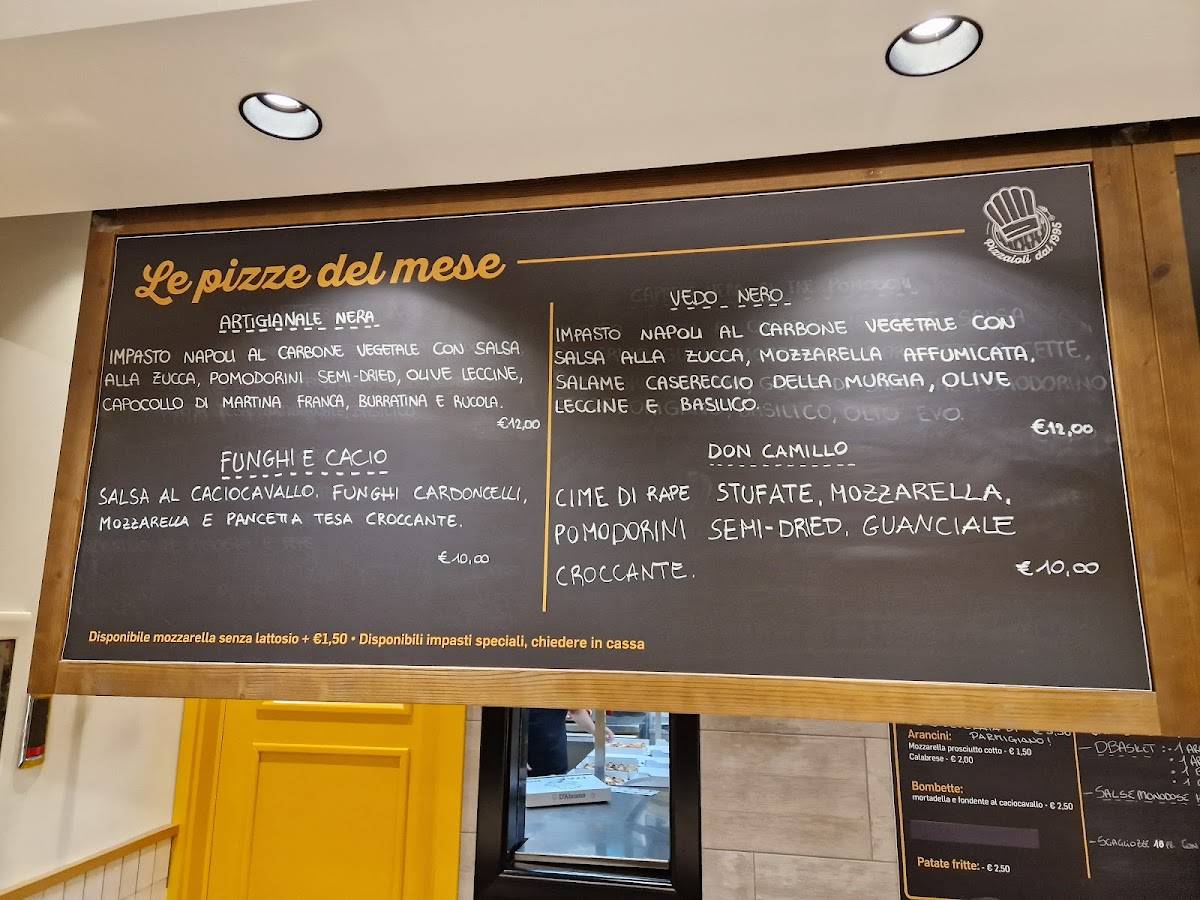 Le pizze del mese
Pizzaioli dal 1995
ARTIGIANALE NERA
IMPASTO NAPOLI AL CARBONE VEGETALE CON SALSA
ALLA ZUCCA, POMODORINI SEMI-DRIED, OLIVE LECCINE,
CAPOCOLLO DI MARTINA FRANCA, BURRATINA E RUCOLA.
€12,00
FUNGHI E CACIO
SALSA AL CACIOCAVALLO, FUNGHI CARDONCELLI,
MOZZARELLA E PANCETTA TESA CROCCANTE.
€10,00
VEDO NERO
IMPASTO NAPOLI AL CARBONE VEGETALE CON
SALSA ALLA ZUCCA, MOZZARELLA AFFUMICATA,
SALAME CASERECCIO DELLA MURGIA, OLIVE
LECCINE E BASILICO.
€12,00
DON CAMILLO
CIME DI RAPE STUFATE, MOZZARELLA,
POMODORINI SEMI-DRIED, GUANCIALE
CROCCANTE.
€10,00
Disponibile mozzarella senza lattosio + €1,50 • Disponibili impasti speciali, chiedere in cassa
PARMIGIANO!
Arancini:
Mozzarella prosciutto cotto - € 1,50
Calabrese - € 2,00
Bombette:
mortadella e fondente al caciocavallo - € 2,50
Patate fritte: - € 2,50
- DBASKET: - 1
- SALSE MONODOSE
- SCAGLIOZZE 10 PZ CON